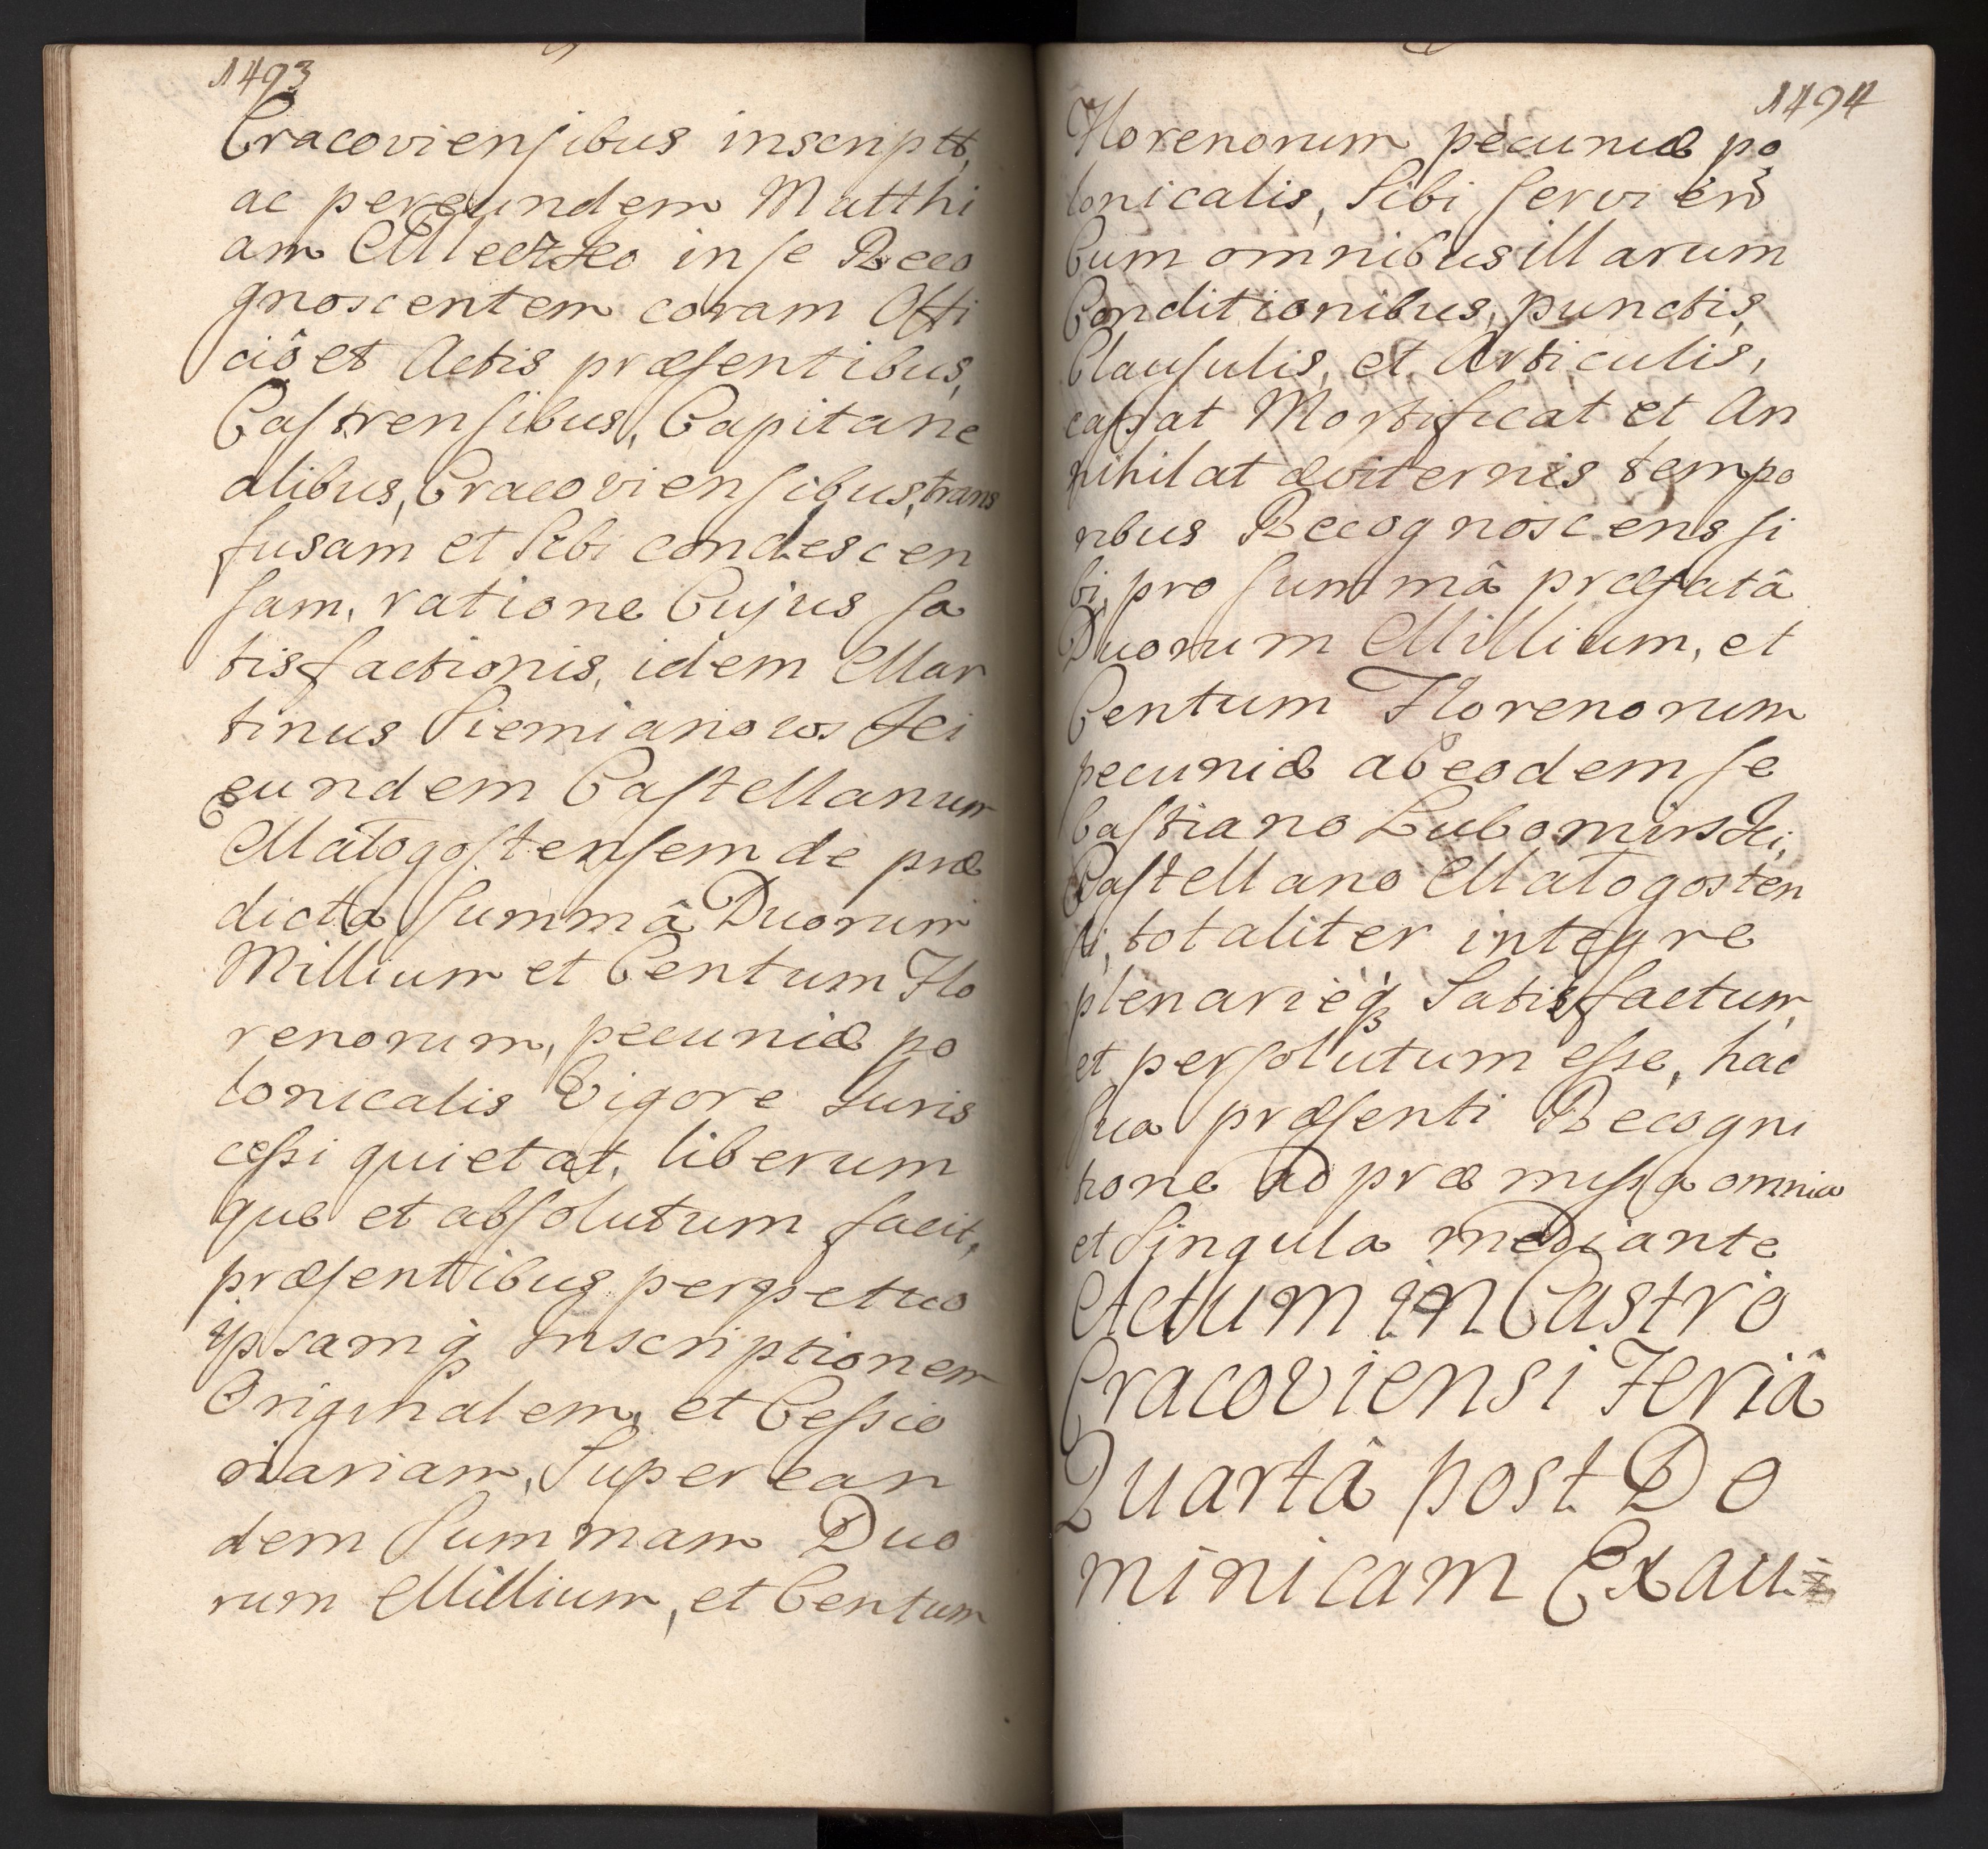 1493
Cracoviensibus inscript,
ac per eundem Matthi
am in se Reco
gnoscentem coram Offi
ciô et Actis præsentibus,
Castrensibus, Capitane
alibus, Cracoviensibus, trans
fusam et Sibi condescen
sam, ratione Cujus sa
tisfactionis, idem Mar
tinus Siemianowski
eundem Castellanum
Małogostensem de præ
dicta Summâ Duorum
Millium et Centum Flo
renorum, pecuniæ po
lonicalis Vigore Juris
cessi quietat, liberum
que et absolutum facit,
præsentibus perpetuo
ipsamq Inscriptionem
Originalem, et Cessio
nariam, Super ean
dem Summam Duo
rum Millium, et Centum
1494
Florenorum pecuniæ po
lonicalis, Sibi servien
Cum omnibus illarum
Conditionibus, punctis,
Clausulis, et Articulis,
cassat Mortificat et An
nihilat æviternis tempo
ribus Recognoscens si
bi, pro summâ præfatâ
Duorum Millium, et
Centum Florenorum
pecuniæ ab eodem Se
bastiano Lubomirski,
Castellano Małogosten
si, totaliter integre
plenarieq Satisfactum
et persolutum esse, hac
sua præsenti Recogni
tione ad præmissa omnia
et Singula mediante
Actum in Castro
Cracoviensi Feriâ
Quartâ post Do
minicam Exau